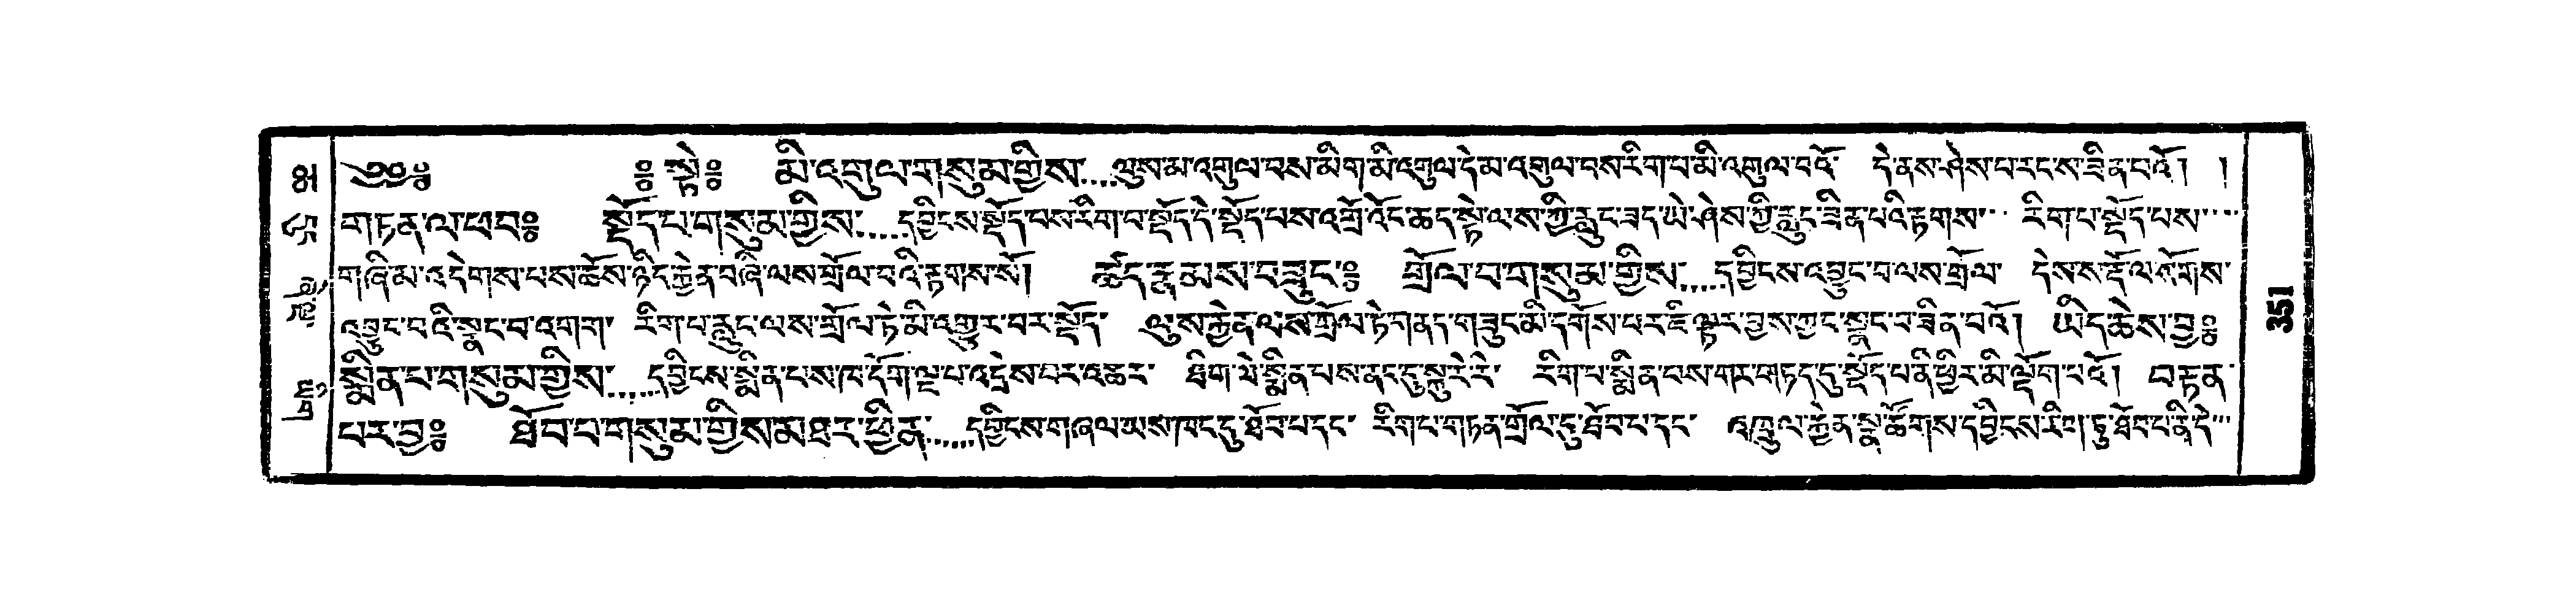 ༄༅༔ ༔སྟེ༔ མི་འགུལ་གསུམ་གྱིས.....ལུས་མ་འགུལ་བས་མིག་མི་འགུལ་དེ་མ་འགུལ་བས་རིག་པ་མི་འགུལ་བའོ་ དེ་ནས་ཤེས་པ་རང་ས་ཟིན་པའོ། །
གཏན་ལ་ཕབ༔ སྡོད་པ་གསུམ་གྱིས.....དབྱིངས་སྡོད་པས་རིག་པ་སྡོད་དེ་སྡོད་པས་འགྲོ་འོང་ཆད་སྟེ་ལས་ཀྱི་རླུང་ཟད་ཡེ་ཤེས་ཀྱི་རླུང་ཟིན་པའི་རྟགས་ རིག་པ་སྡོད་པས....
གཞི་མ་འདེགས་པས་ཆོས་ཉིད་རྐྱེན་བཞི་ལས་གྲོལ་བའི་རྟགས་སོ། ཚད་རྣམས་བཟུང་༔ གྲོལ་བ་གསུམ་གྱིས.....དབྱིངས་འབྱུང་བ་ལས་གྲོལ་ དེས་ས་རྡོ་ལ་སོགས་
འབྱུང་བའི་སྣང་བ་འགག་ རིག་པ་རླུང་ལས་གྲོལ་ཏེ་མི་འགྱུར་བར་སྡོད་ ལུས་རྐྱེན་ལས་གྲོལ་ཏེ་གནད་གཟུང་མི་དགོས་པར་ཇི་ལྟར་བྱས་ཀྱང་སྣང་བ་ཟིན་པའོ། ཡིད་ཆེས་བྱ༔
སྨིན་པ་གསུམ་གྱིས......དབྱིངས་སྨིན་པས་ཁ་དོག་ལྔ་པ་འདྲེས་པར་འཆར་ ཐིག་ལེ་སྨིན་པས་ནང་དུ་སྐུ་རེ་རེ་ རིག་པ་སྨིན་པས་གར་གཏད་དུ་སྡོད་པ་ནི་ཕྱིར་མི་ལྡོག་པའོ། བརྟན་
པར་བྱ༔ ཐོབ་པ་གསུམ་གྱིས་མཐར་ཕྱིན......དབྱིངས་གཞལ་ཡས་ཁང་དུ་ཐོབ་པ་དང་ རིག་པ་གཏན་གྲོལ་དུ་ཐོབ་པ་དང་ འཁྲུལ་རྐྱེན་སྣ་ཚོགས་དབྱིངས་རིག་ཏུ་ཐོབ་པ་ནི་དེ...